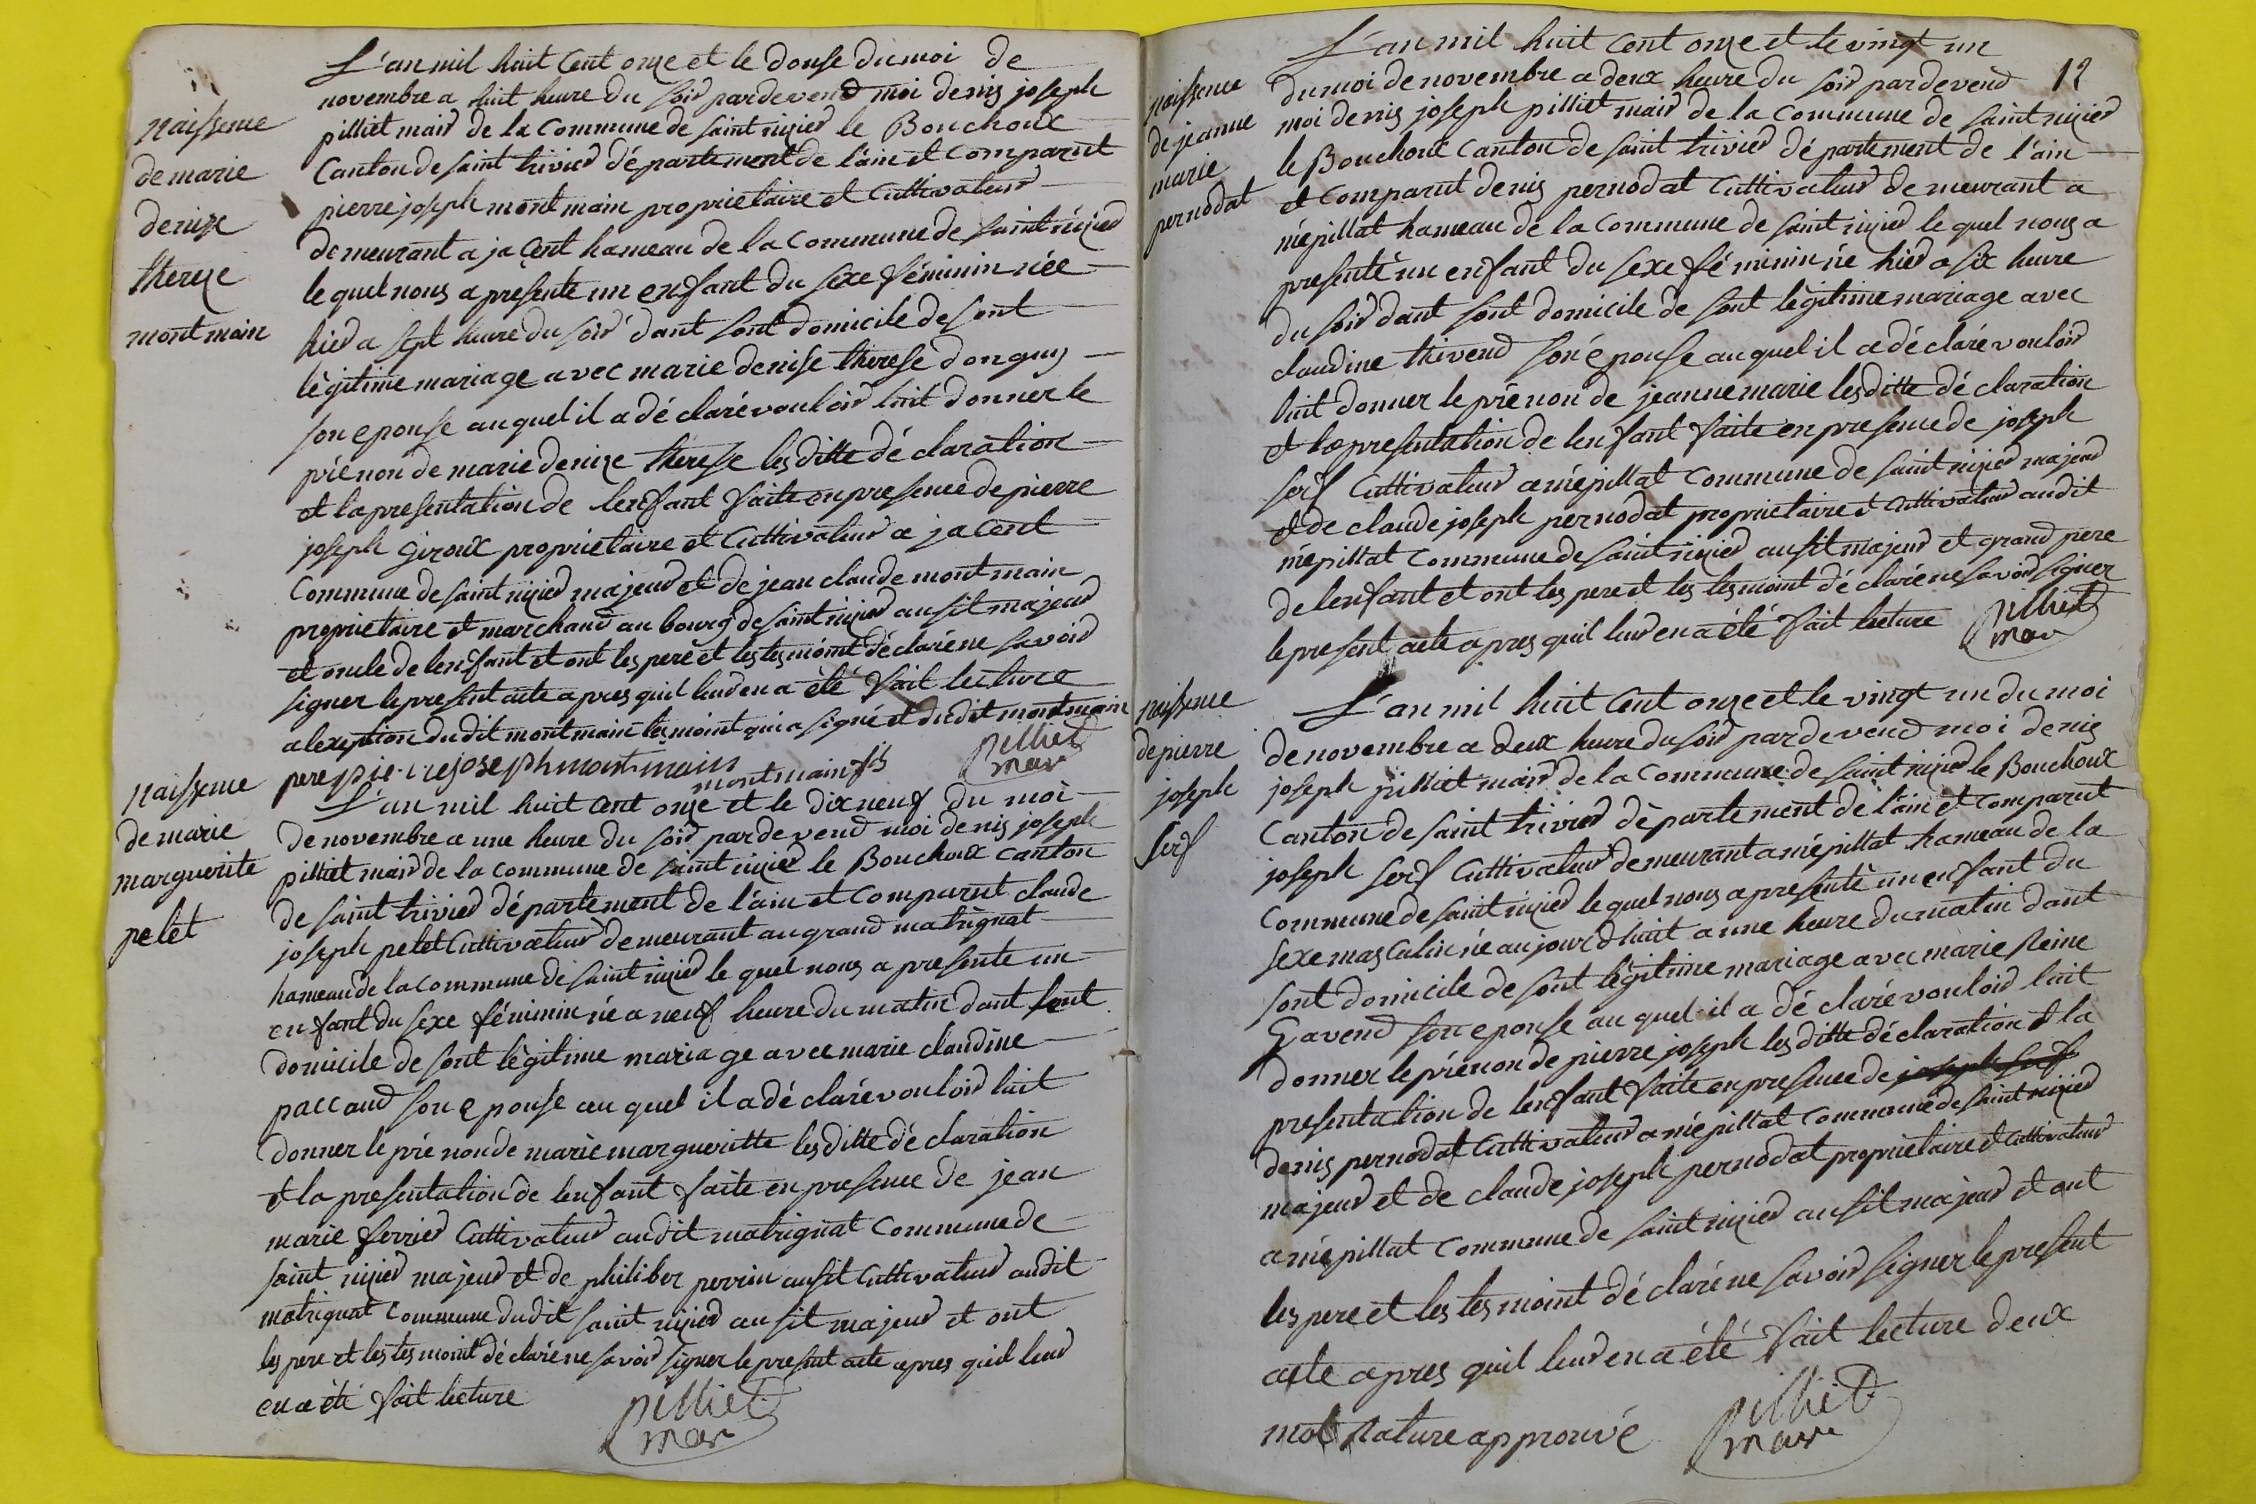 naissence
de marie
denize
thereze
montmain
L'an mil huit Cent onze et le douse du moi de
novembre a huit heure du soir par devend moi denis joseph
pilliet mair de la Commune de saint nizier le Bouchoux
Canton de saint trivier département de l'ain et Comparut
pierre joseph montmain proprietaire et Cultivateur
demeurant a jaCent hameau de la Commune de saint nizier
le quel nous a presente un enfant du sexe féminin née
hier a sept heure du soir dant sont domicile de sont
lègitime mariage avec marie denise therese donguy
son epouse au quel il a dé claré vouloir luit donner le
prénon de marie denize therese les ditte dé claration
et la presentation de lenfant faite en presence de pierre
joseph giroux proprietaire et Cultivateur a jaCent
Commune de saint nizier majeur et de jean claude montmain
proprietaire et marchand au bourg de saint nizier ausit majeur
et oncle de lenfant et ont les pere et les tesmoint déclaré ne savoir
signer le present acte apres quil leur en a été fait lecture
a lexeption du dit montmain tesmoint qui a signé et du dit montmain
pere pierre joseph montmain
montmain fs
pilliet
mair
naissence
de marie
marguerite
pelet
L'an mil huit Cent onze et le dix neuf du moi
de novembre a une heure du soir par devend moi denis joseph
pilliet mair de la Commune de saint nizier le Bouchoux Canton
de saint trivier département de l'ain et Comparut claude
joseph pelet Cultivateur demeurant au grand matrignat
hameau de la Commune de saint nizier le quel nous a presente un
enfant du sexe féminin né a neuf heure du matin dant sont
domicile de sont lègitime mariage avec marie claudine
paccaud son epouse au quel il a dé claré vouloir luit
donner le pré non de marie margueritte les ditte dé claration
et la presentation de lenfant faite en presence de jean
marie ferrier Cultivateur au dit matrignat Commune de
saint nizier majeur et de philiber perrin ausit Cultivateur au dit
matrignat Commune du dit saint nizier ausit majeur et ont
les pere et les tesmoint dé claré ne savoir signer le present acte apres quil leur
en a été fait lecture
pilliet
mair
12
naissence
de jeanne
marie
pernodat
L'an mil huit Cent onze et le vingt un
du moi de novembre a deux heure du soir par devend
moi denis joseph pilliet mair de la Commune de saint nizier
le Bouchoux Canton de saint trivier département de l'ain
et Comparut denis pernodat Cultivateur demeurant a
mépillat hameau de la Commune de saint nizier le quel nous a
presenté un enfant du sexe féminin né hier a six heure
du soir dant sont domicile de sont lègitime mariage avec
claudine thivend son épouse au quel il a dé claré vouloir
luit donner le prénon de jeanne marie les ditte dé claration
et la presentation de lenfant faite en presence de joseph
serf Cultivateur a mépillat Commune de saint nizier majeur
et de claude joseph pernodat proprietaire et Cultivateur au dit
mépillat Commune de saint nizier ausit majeur et grand pere
de lenfant et ont les pere et les tesmoint dé claré ne savoir signer
le present acte apres quil leur en a été fait lecture
pilliet
mair
naissence
de pierre
joseph
Serf
L'an mil huit Cent onze et le vingt un du moi
de novembre a deux heure du soir par devend moi denis
joseph pilliet mair de la Commune de saint nizier le Bouchoux
Canton de saint trivier département de l'ain et Comparut
joseph serf Cultivateur demeurant a mépillat hameau de la
Commune de saint nizier le quel nous a presenté un enfant du
sexe masCulin né aujourd huit a une heure du matin dant
sont domicile de sont lègitime mariage avec marie Reine
Gavend son epouse au quel il a dé claré vouloir luit
donner le prénon de pierre joseph les ditte déclaration et la
presentation de lenfant faite en presence de joseph serf
denis pernodat Cultivateur a mépillat Commune de saint nizier
majeur et de claude joseph pernodat proprietaire et Cultivateur
a mépillat Commune de saint nizier ausit majeur et ont
les pere et les tesmoint dé claré ne savoir signer le present
acte apres quil leur en a été fait lecture deux
mot rature approuvé
pilliet
mair